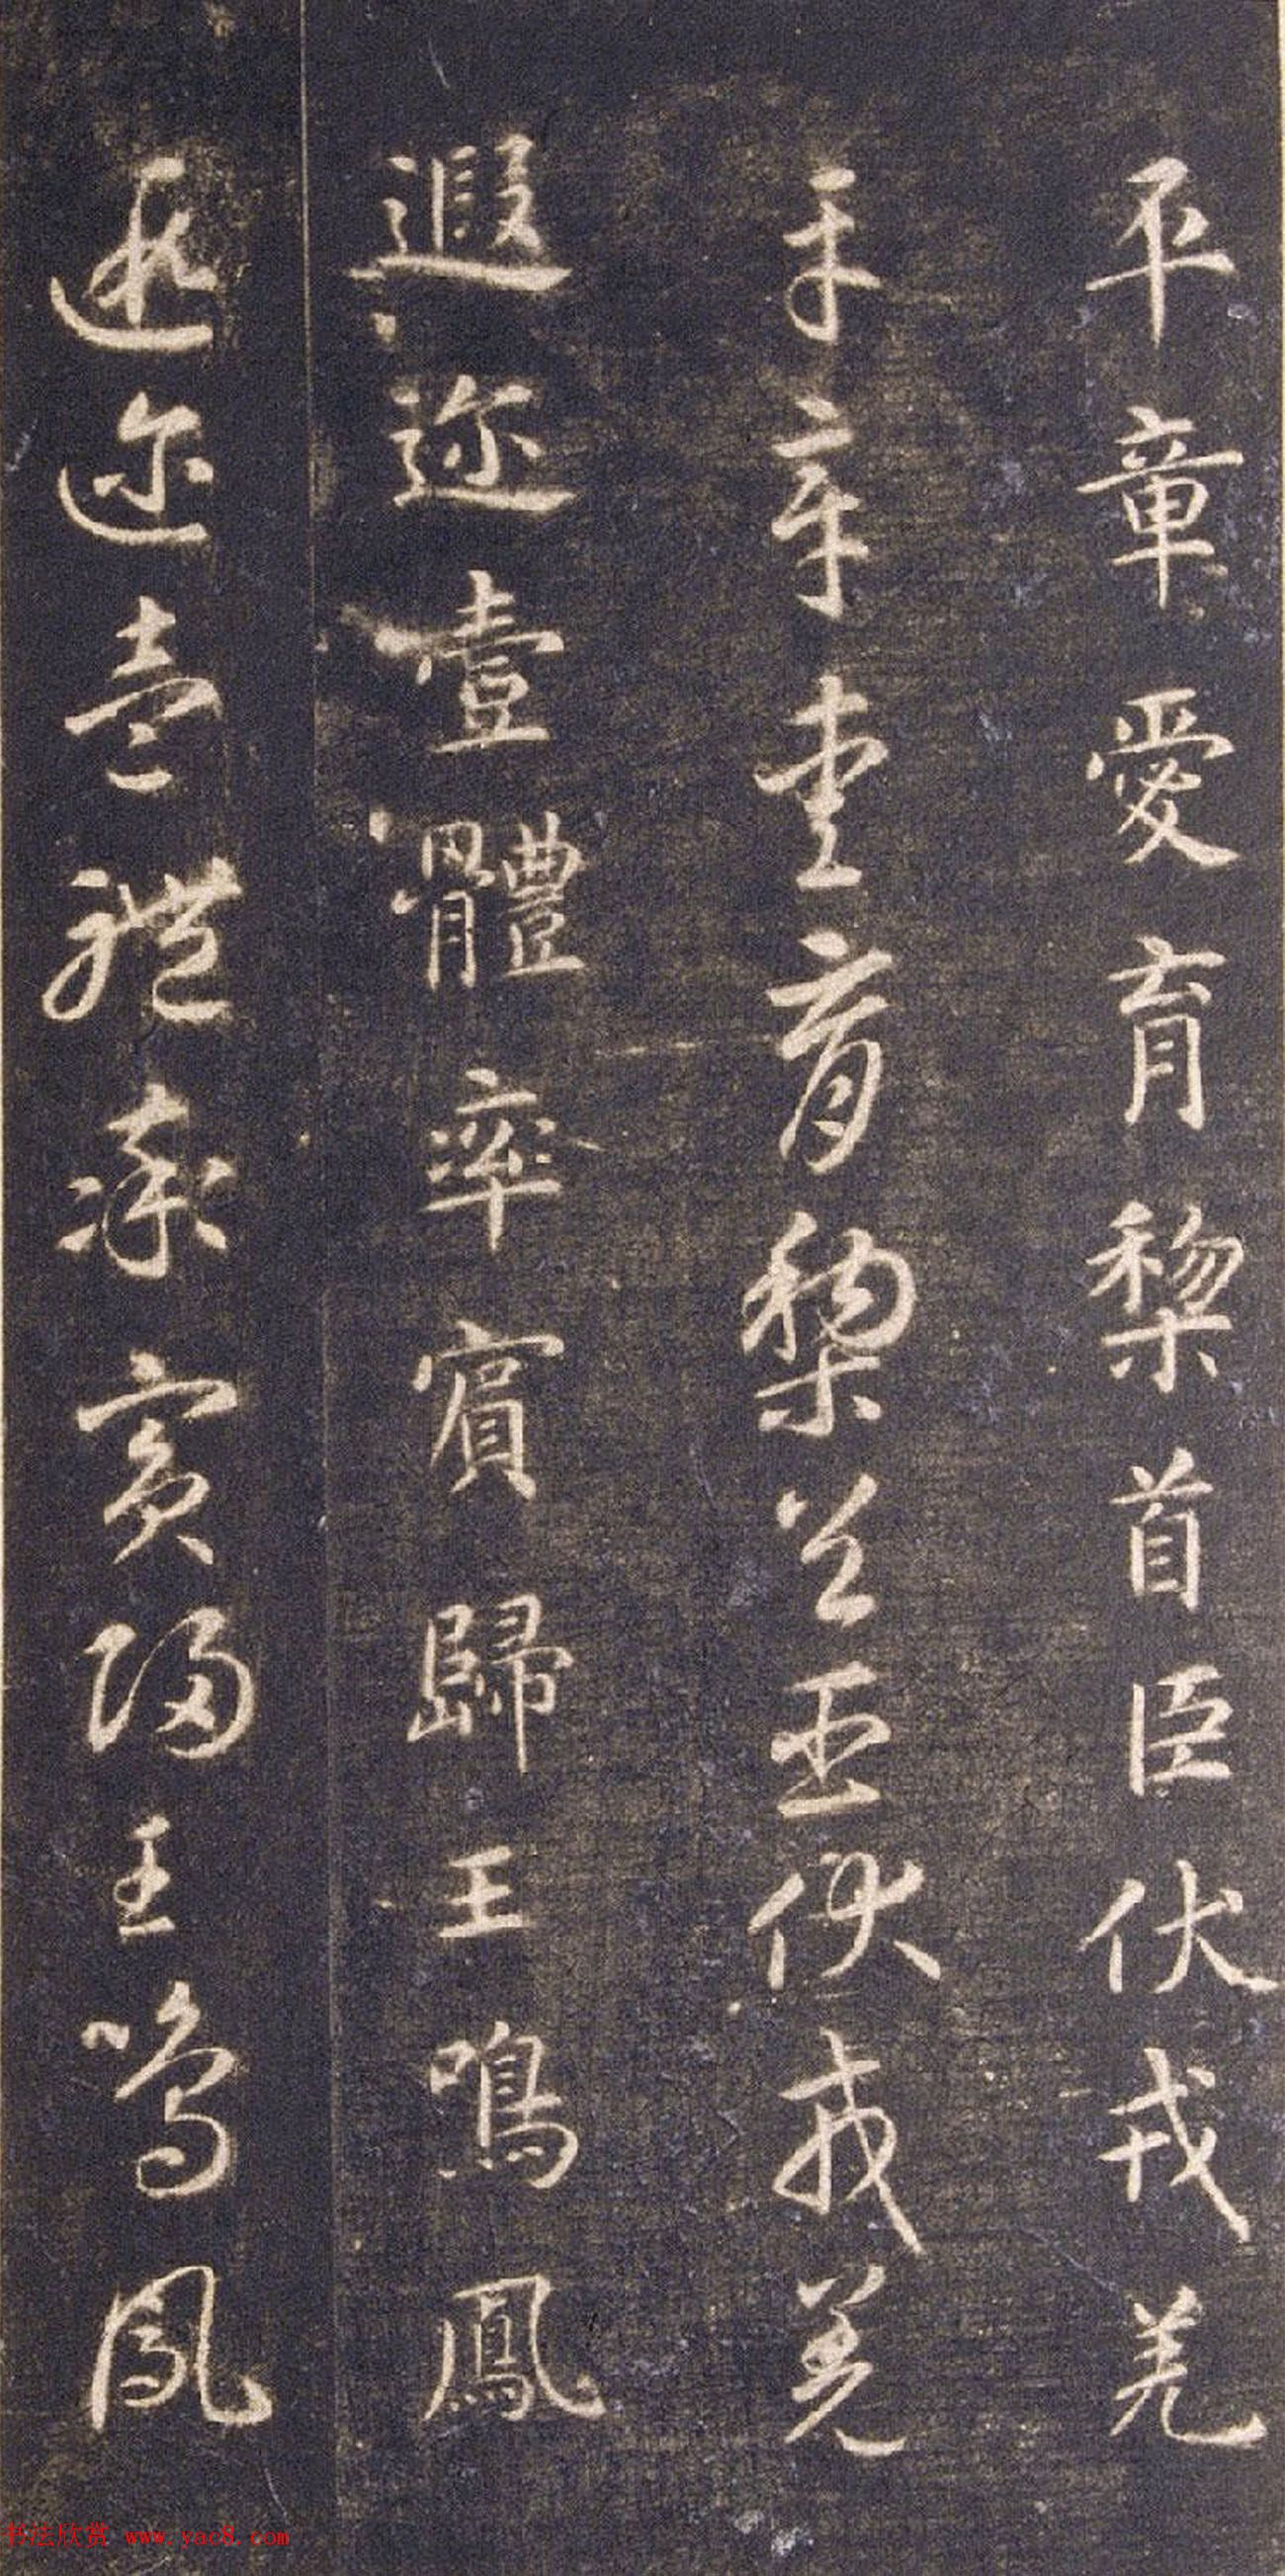 平章愛育黎首臣伏戎羌
平章愛育黎首臣伏戎羌
遐迩壹體率賓歸王鳴鳳
遐迩壹體率賓歸王鳴鳳
书法欣赏 www.yac8.com